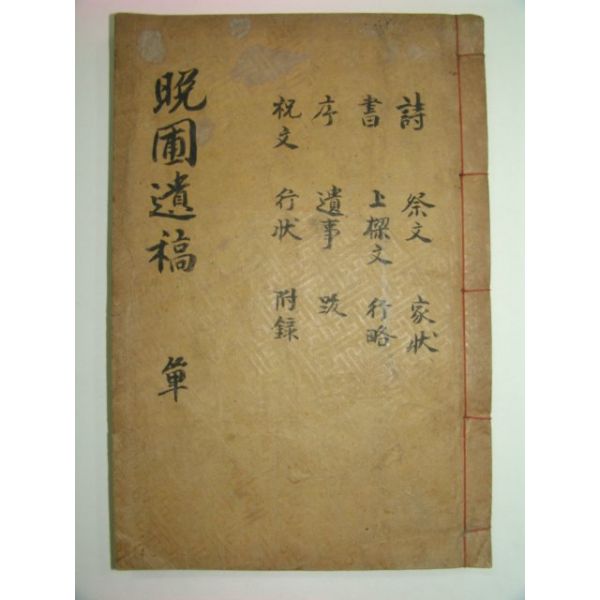 晩圃遺稿 單
詩 祭文 家狀
書 上樑文 行略
序 遺事 跋
祝文 行狀 附錄